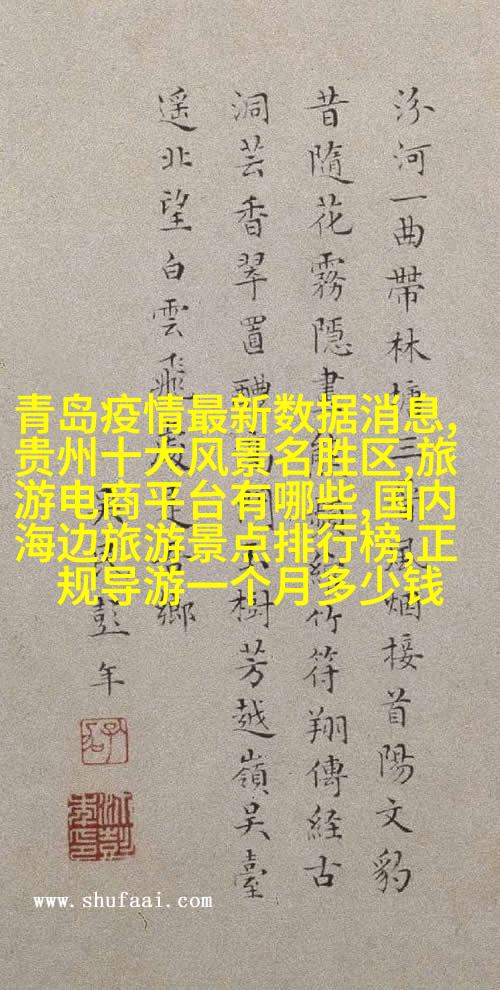 汾河一曲帶林塘三
風烟接首陽文豹
昔隨花霧隱書
竹符翔傳經古
洞芸香翠置醴
樹芳越嶺吳臺
遥北望白雲飛
鄉
彭年
青岛疫情最新数据消息,
贵州十大风景名胜区,旅
游电商平台有哪些,国内
海边旅游景点排行榜,正
规导游一个月多少钱
www.shufaai.com